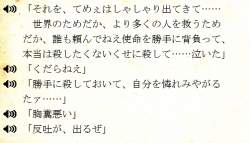 「それを、てめぇはしゃしゃり出てきて……
世界のためだか、より多くの人を救うため
だか、誰も頼んでねえ使命を勝手に背負って、
本当は殺したくないくせに殺して……泣いた」
「くだらねえ」
「勝手に殺しておいて、自分を憐れみやがる
たァ……」
「胸糞悪い」
「反吐が、出るぜ」